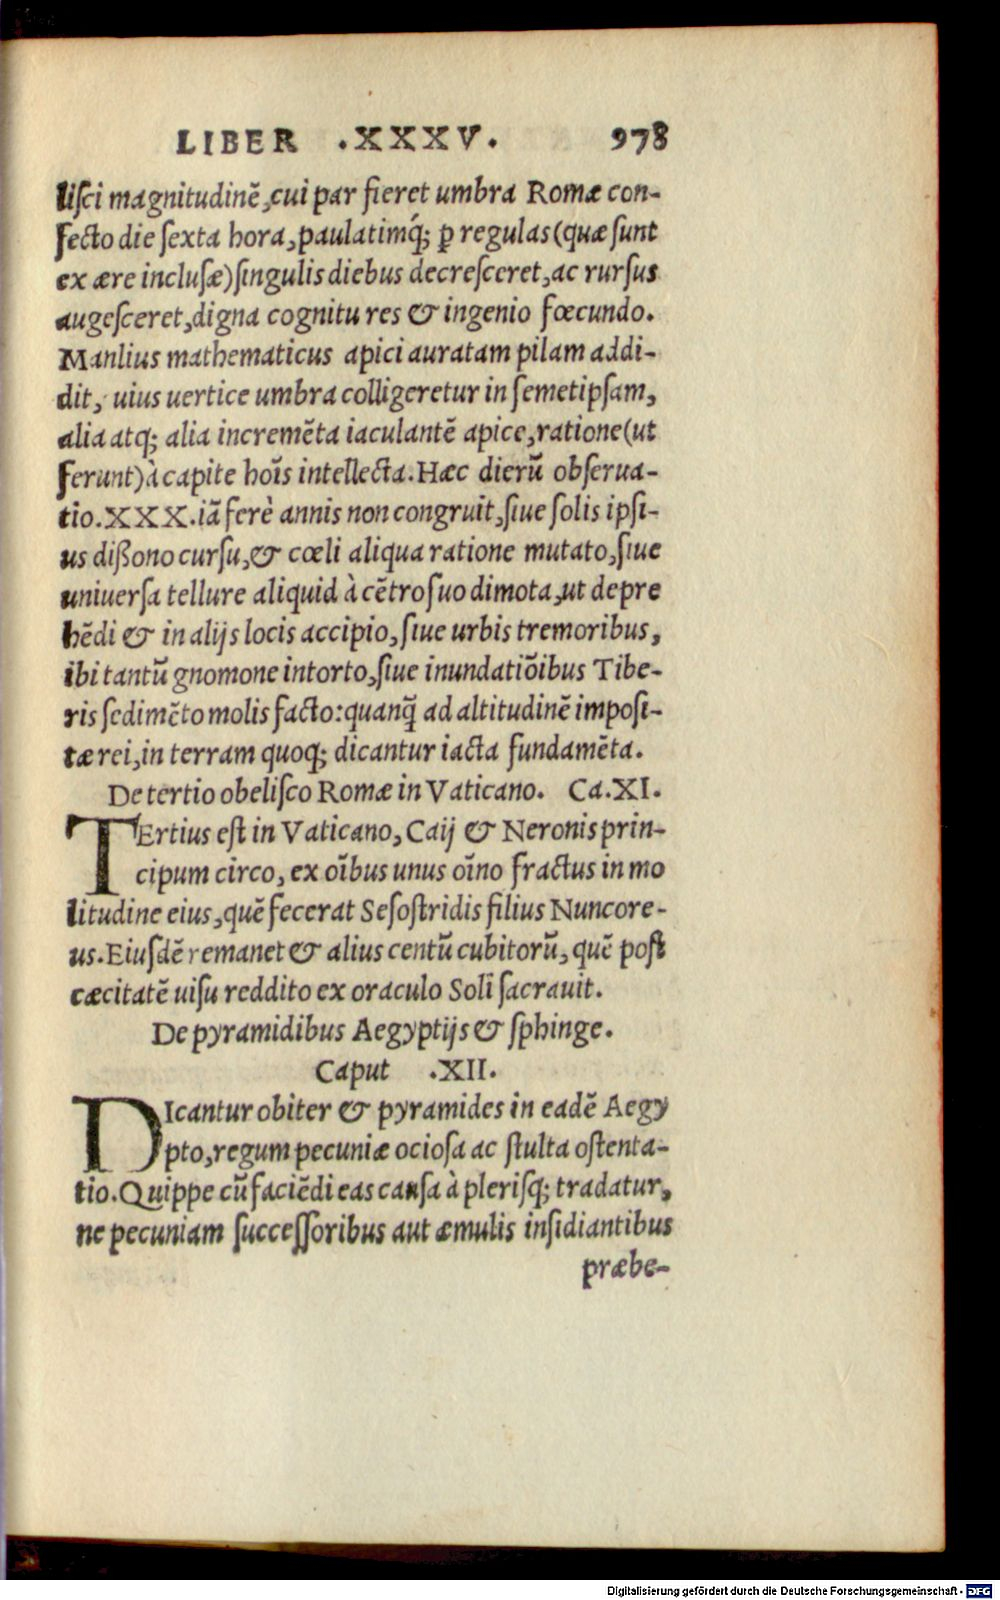 LIBER .XXXV. 978
liſci magnitudinē,cui par fieret umbra Romæ con-
fecto die ſexta hora,paulatimq́; ꝑ regulas(quæ ſunt
ex ære incluſæ)ſingulis diebus decreſceret,ac rurſus
augeſceret,digna cognitu res & ingenio fœcundo.
Manlius mathematicus apici auratam pilam addi-
dit, uius uertice umbra colligeretur in ſemetipſam,
alia atq; alia incremēta iaculantē apice,ratione(ut
ferunt)à capite hoīs intellecta.Hæc dierū obſerua-
tio.XXX.iā ferè annis non congruit,ſiue ſolis ipſi-
us dißono curſu,& cœli aliqua ratione mutato,ſiue
uniuerſa tellure aliquid à cētro ſuo dimota,ut depre
hēdi & in alijs locis accipio,ſiue urbis tremoribus,
ibi tantū gnomone intorto,ſiue inundatiōibus Tibe-
ris ſedimēto molis facto:quanq̄ ad altitudinē impoſi-
tæ rei,in terram quoq; dicantur iacta fundamēta.
De tertio obeliſco Romæ in Vaticano. Ca.XI.
TErtius eſt in Vaticano,Caij & Neronis prin-
cipum circo, ex oībus unus oīno fractus in mo
litudine eius,quē fecerat Seſoſtridis filius Nuncore-
us.Eiuſdē remanet & alius centū cubitorū, quē poſt
cæcitatē uiſu reddito ex oraculo Soli ſacrauit.
De pyramidibus Aegyptijs & ſphinge.
Caput .XII.
DIcantur obiter & pyramides in eadē Aegy
pto,regum pecuniæ ocioſa ac ſtulta oſtenta-
tio.Quippe cū faciēdi eas cauſa à pleriſq; tradatur,
ne pecuniam ſucceſſoribus aut æmulis inſidiantibus
præbe-
Digitalisierung gefördert durch die Deutsche Forschungsgemeinschaft - DFG